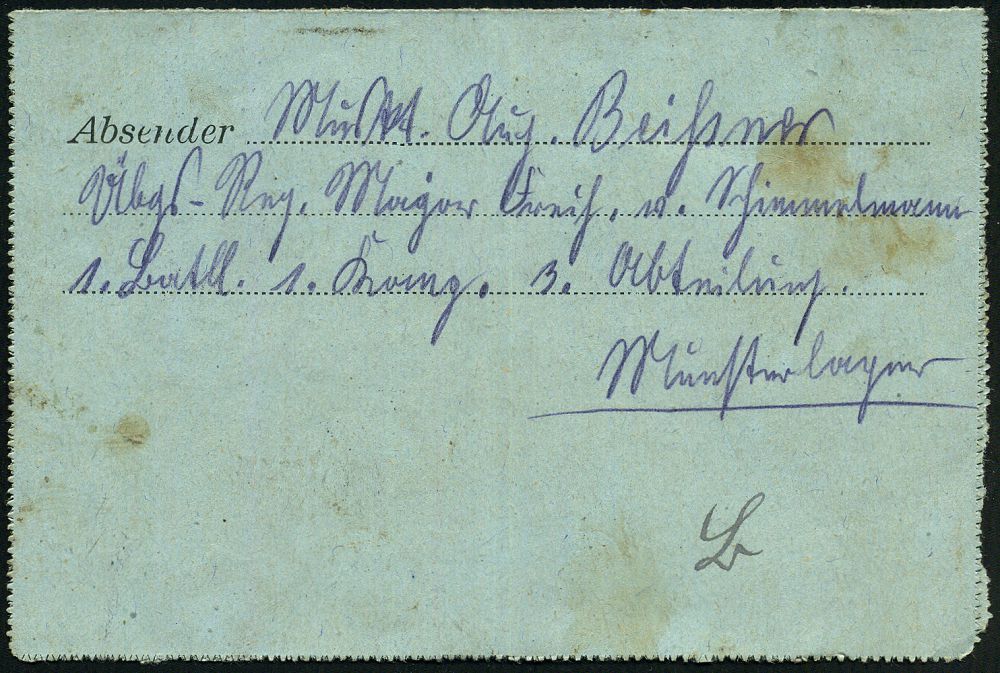 Absender Muskt. Aug. Beißner
Übgs-Reg. Major Freih. v. Schimmelmann
1. Batll. 1. Komp. 3. Abteilung.
Munsterlager